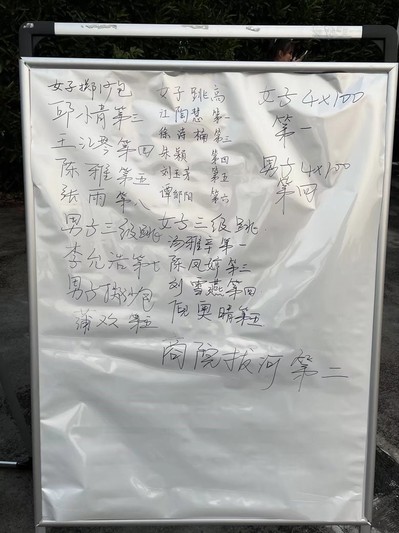 女子掷沙包
邱小倩第三
王江琴第四
陈雅第五
张雨第八
男子三级跳
李允浩第七
男子掷沙包
蒲欢第五
女子跳高
江陶慧第一
徐诗楠第三
朱颖第四
刘玉芳第五
谭郁阳第六
女子三级跳
汤雅平第一
陈凤婷第三
刘雪燕第四
倪奥晴第五
女子4×100
第一
男子4×100
第四
商院拔河第二